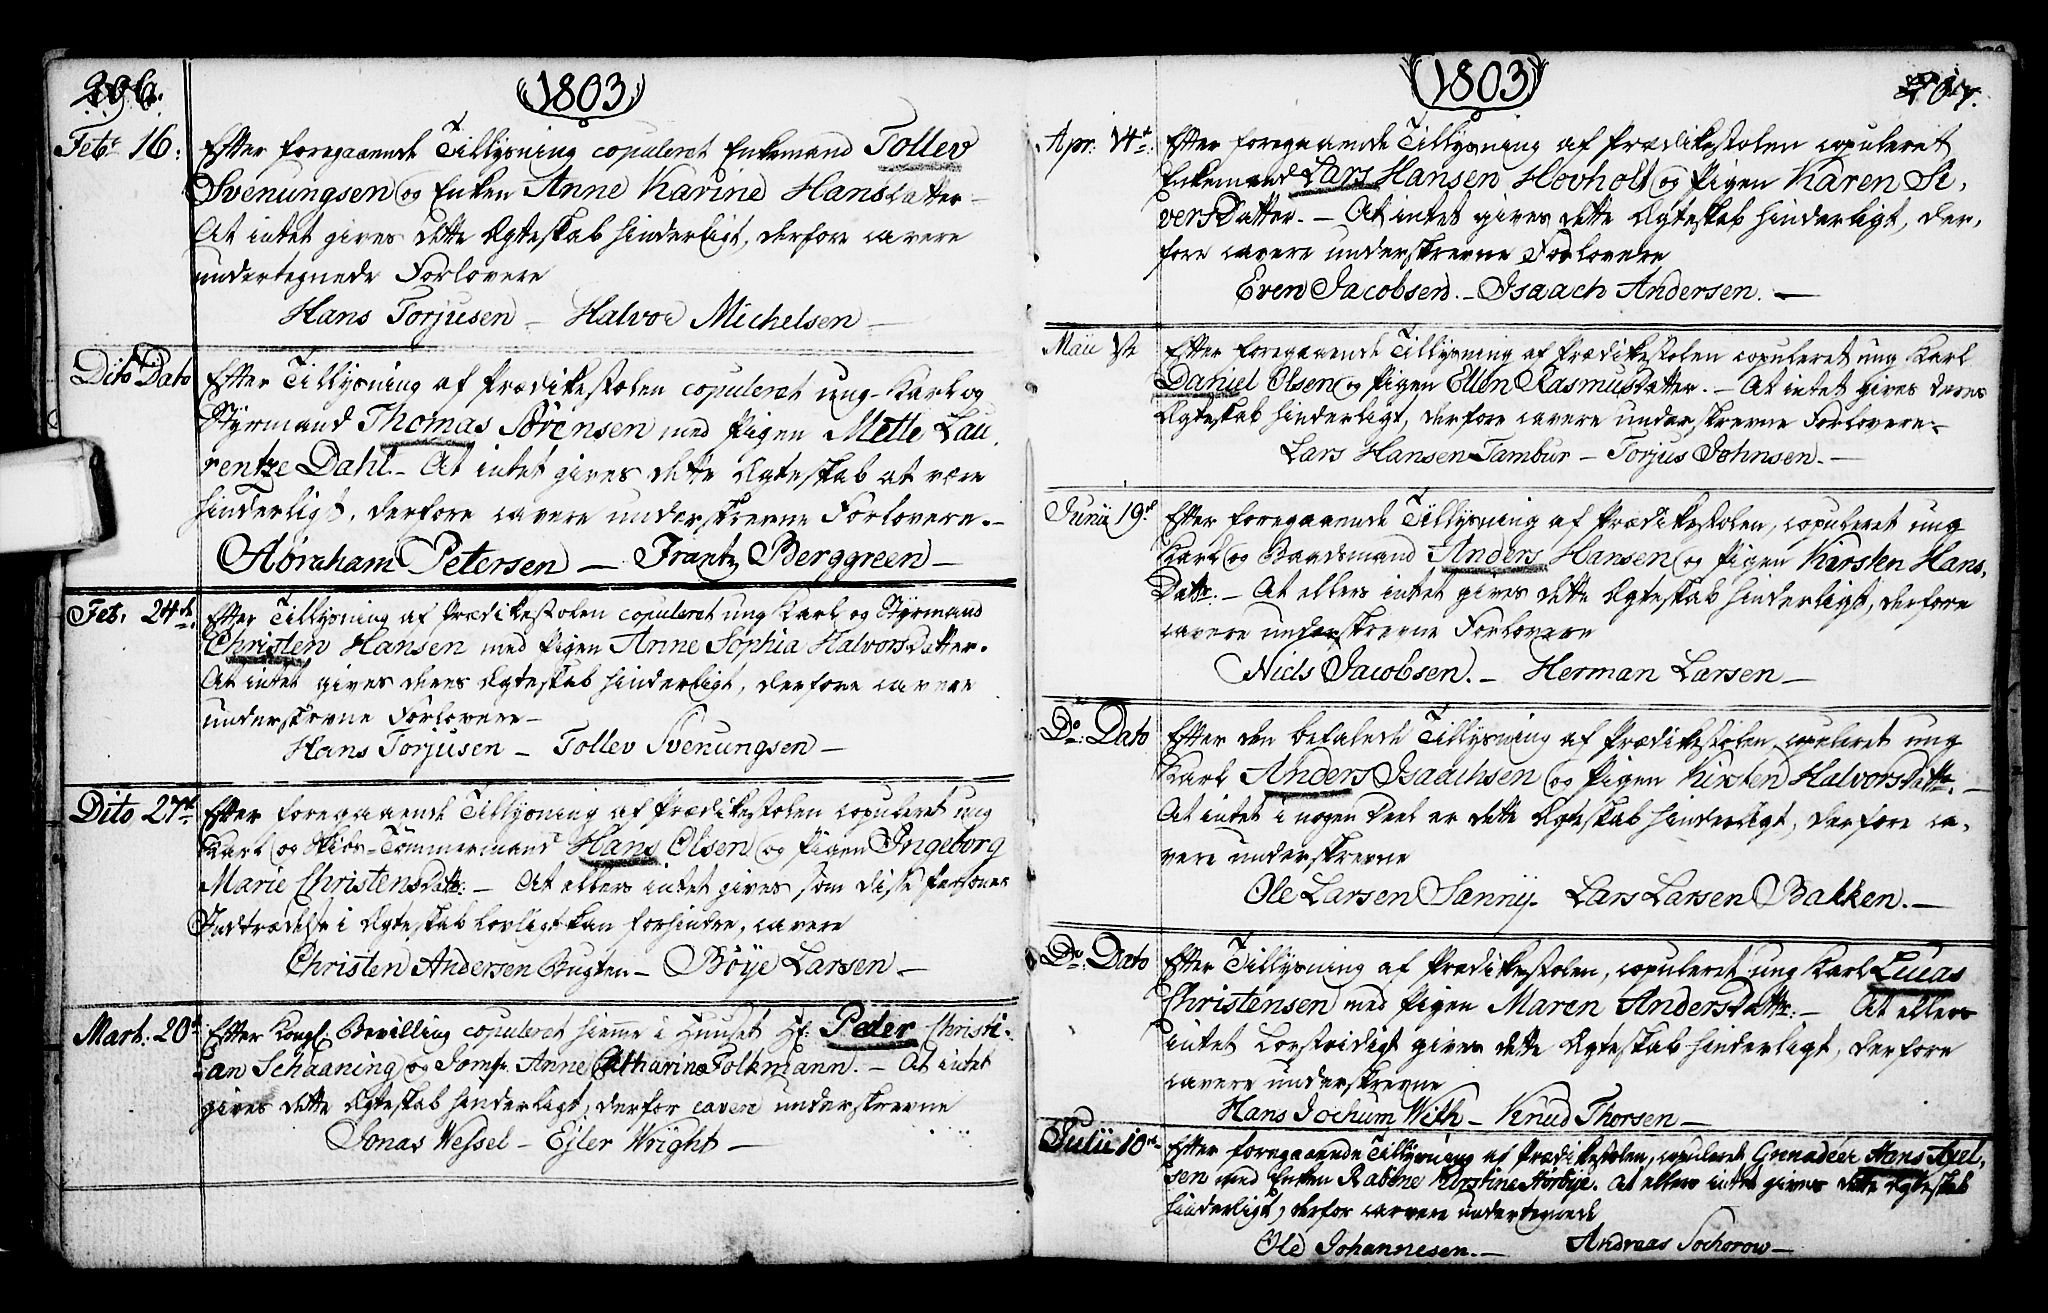 1803
Febr 16. Efter foregaaende Tillysning copuleret Enkemand Tollev
Svenungsen og Enken Anne Karine Hansdatter –
At intet gives dette Ægteskab hinderligt, derfore cavere
undertegnede Forlovere
Hans Torjusen – Halvor Michelsen –
Dito Dato Efter Tillysning af Prædikestolen copuleret ung-Karl og
Styrmand Thomas Sørensen med Pigen Mette Lau,
rentze Dahl. – At intet gives dette Ægteskab at være
hinderligt, derfore cavere underskrevne Forlovere. –
Abraham Petersen – Frantz Berggreen –
Feb. 24de Efter Tillysning af Prædikestolen copuleret ung Karl og Styrmand
Christen Hansen med Pigen Anne Sophia Halvorsdatter.
At intet gives deres Ægteskab hinderligt, derfore cavere
underskrevne Forlovere –
Hans Torjusen – Tollev Svenungsen –
Dito 27de Efter foregaaende Tillysning af Prædikestolen copuleret ung
Karl og Skibs-Tømmermand Hans Olsen og Pigen Ingeborg
Marie ChristensDattr: – At ellers intet gives som disse Personers
Indtrædelse i Ægteskab lovligt kan forhindre, cavere
Christen Andersen Bugten – Bøye Larsen –
Mart: 20de Efter Kongl. Bevilling copuleret hiemme i Huuset Hr. Peder Christi-
an Schaaning og Jomfr. Anne Catharina Folkmann. – At intet
gives dette Ægteskab hinderligt, derfor cavere underskrevne
Jonas Wessel – Ejler Wright –
1803
Apr: 14de. Efter foregaaende Tillysning af Prædikestolen copuleret
Enkemand Lars Hansen Hovholt og Pigen Karen Si,
versDatter. – At intet gives dette Ægteskab hinderligt, der,
fore cavere underskrevne Forlovere
Even Jacobsen. – Isaach Andersen. –
Maii 1ste Efter foregaaende Tillysning af Prædikestolen copuleret ung Karl
Daniel Olsen og Pigen Ellen Rasmusdatter. – At intet gives deres
Ægteskab hinderligt, derfore cavere underskrevne Forlovere –
Lars Hansen Tambur – Torjus Johnsen. –
Junii 19de Efter foregaaende Tillysning af Prædikestolen, copuleret ung
Karl og Baadsmand Anders Hansen og Pigen Kirsten Hans,
Dattr. – At ellers intet gives dette Ægteskab hinderligt, derfore
cavere underskrevne Forlovere
Niels Jacobsen. – Herman Larsen –
Do: Dato Efter den befalede Tillysning af Prædikestolen copuleret ung
Karl Anders Isaachsen og Pigen Kirsten HalvorsDattr. –
At intet i nogen Deel er dette Ægteskab hinderligt, derfore ca,
vere underskrevne
Ole Larsen Sanny. Lars Larsen Bakken. –
Do: Dato Efter Tillysning af Prædikestolen, copuleret ung Karl Lucas
Christensen med Pigen Maren AndersDattr: – At ellers
intet lovstridigt gives dette Ægteskab hinderligt, derfore
cavere underskrevne
Hans Jochum With – Knud Thorsen –
Julii 10de Efter foregaaende Tillysning af Prædikestolen, copuleret Grenadeer Hans Axel,
sen med Enken Rabene Kirstine Hørbye. At ellers intet gives dette Ægteskab
hinderligt, derfor cavere undertegnede
Ole Johannesen. – Andreas Sochorow –